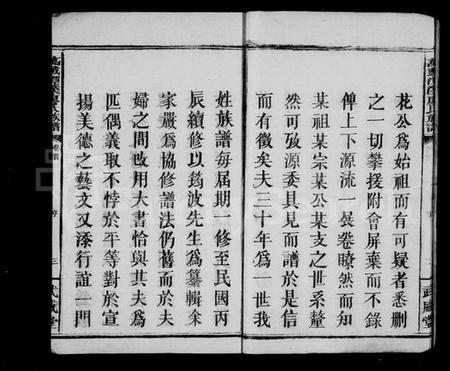 花公爲始祖而有可疑者悉刪
之一切攀援附會屏棄而不錄
俾上下源流一展卷瞭然而知
某祖某宗某公某支之世系釐
然可攷源委具見而譜於是信
而有徵矣夫三十年爲一世我
姓族譜每届期一修至民國丙
辰續修以筠波先生爲纂輯籴
家嚴爲協修譜法仍舊而於夫
婦之間改用大書恰與其夫爲
匹偶義取不悖於平等對於宣
揚美德之藝文又添行誼一門
族譜
三
武威堂
武威堂